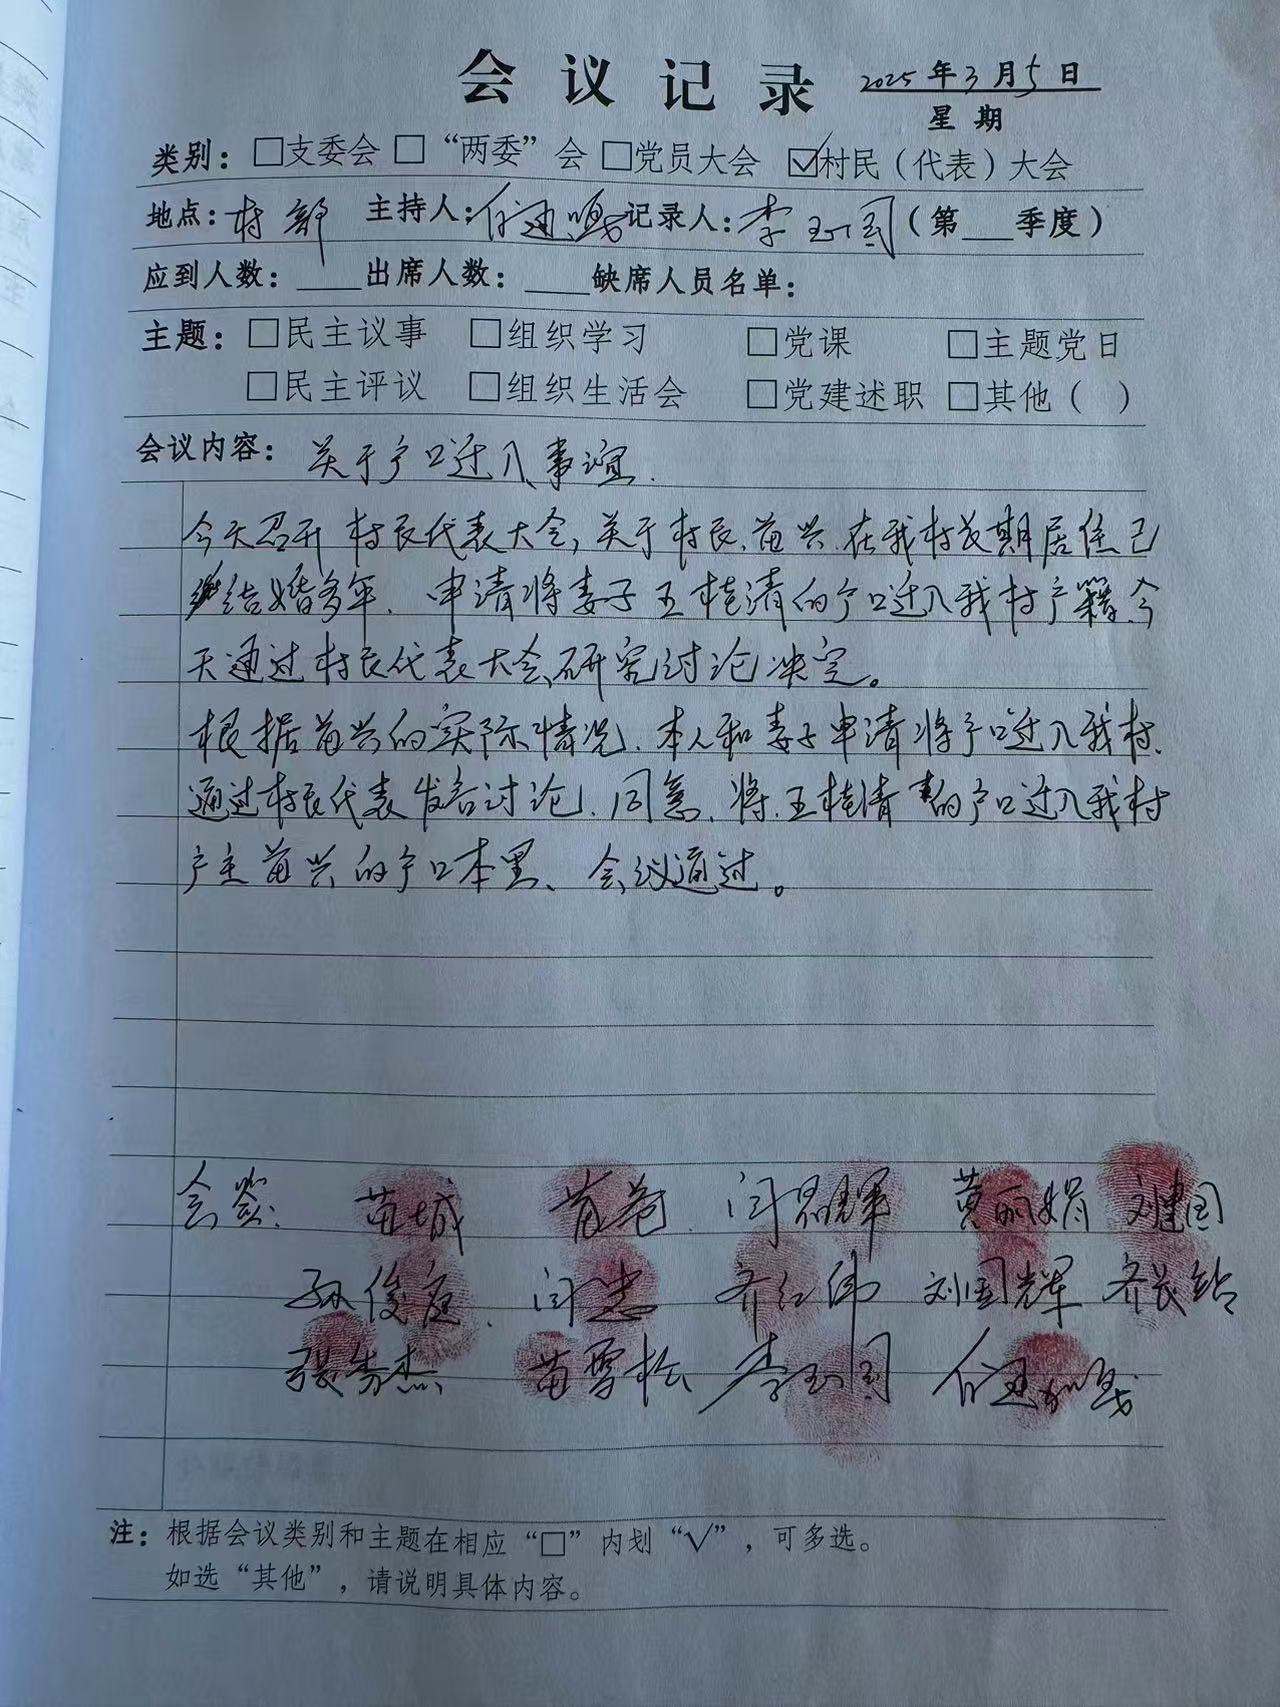 会议记录 2025年3月5日
星期
类别：□支委会 □“两委”会 □党员大会 ☑村民（代表）大会
地点：村部 主持人：付建鸣 记录人：李玉国（第___季度）
应到人数：____出席人数：____缺席人员名单：
主题：□民主议事 □组织学习 □党课 □主题党日
□民主评议 □组织生活会 □党建述职 □其他（ ）
会议内容：关于户口迁入事谊.
今天召开村民代表大会，关于村民、苗兴.在我村长期居住已
结婚多年.申请将妻子王桂清的户口迁入我村户籍.今
天通过村民代表大会研究讨论决定。
根据苗兴的实际情况.本人和妻子申请将户口迁入我村.
通过村民代表发言讨论.同意.将.王桂清的户口迁入我村
户主苗兴的户口本里、会议通过。
会签: 苗城 苗苍 闫景辉 黄丽娟 刘建国
孙俊庭 闫忠 齐红伟 刘国辉 齐长
张秀杰 苗雪松 李玉国 付建鸣
注：根据会议类别和主题在相应“□”内划“√”，可多选。
如选“其他”，请说明具体内容。